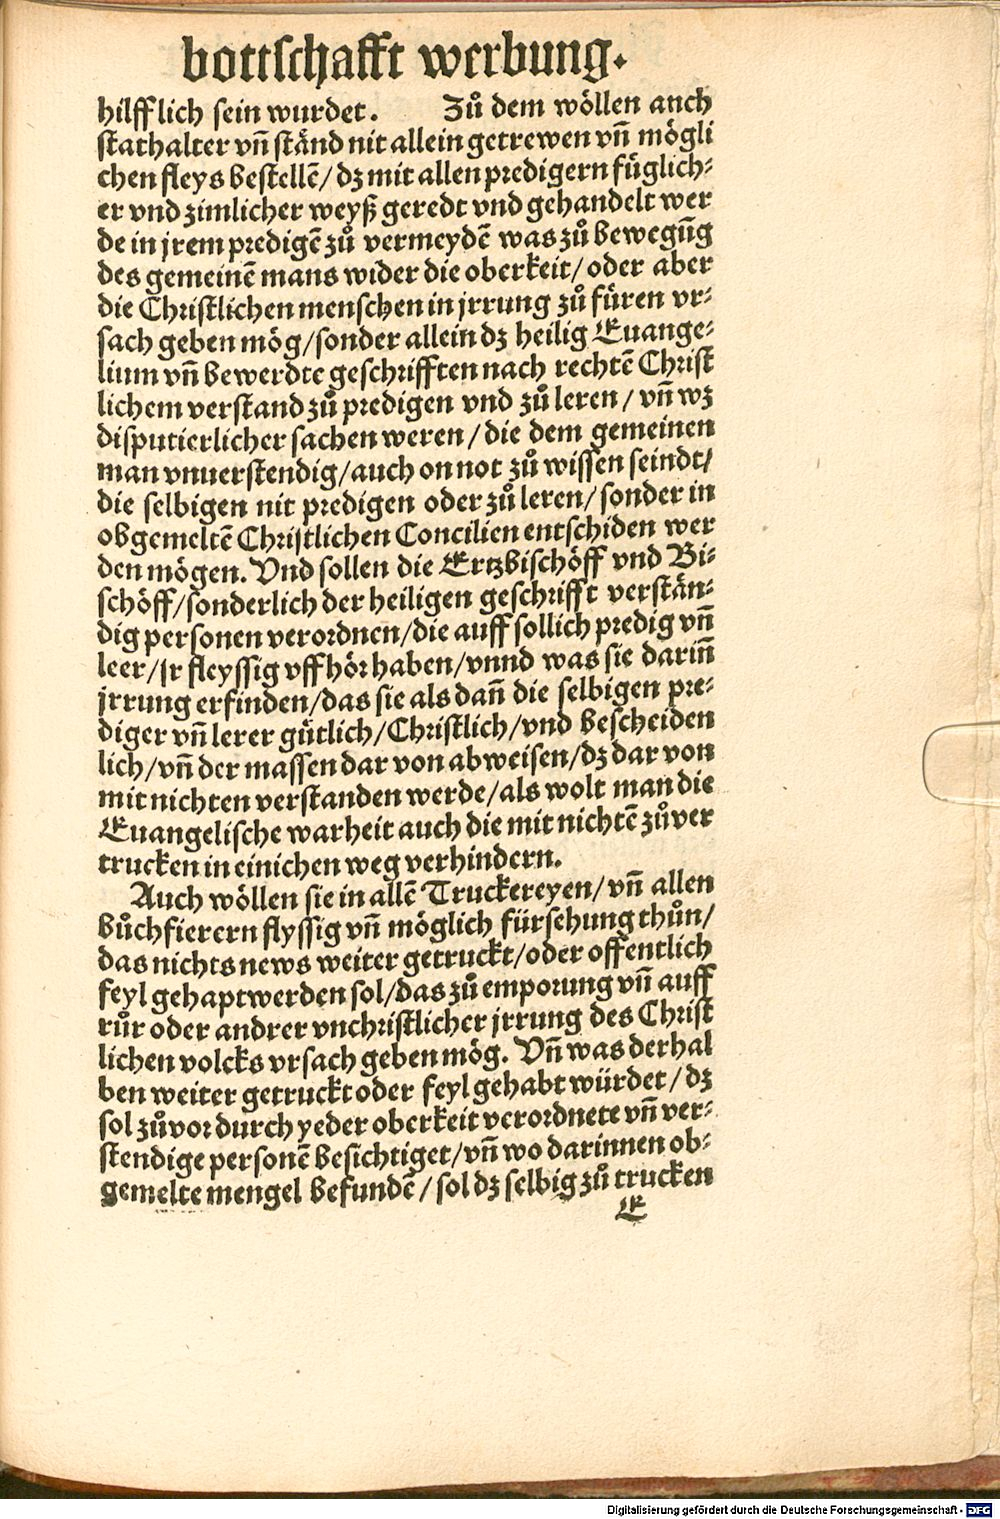 bottschafft werbung.
hilfflich sein wurdet. Zů dem wöllen anch
stathalter vñ ständ nit allein getrewen vñ mögli
chen fleys bestellẽ/ dz mit allen predigern füglich⸗
er vnd zimlicher weyß geredt vnd gehandelt wer
de in jrem predigẽ zů vermeydẽ was zů bewegũg
des gemeinẽ mans wider die oberkeit/ oder aber
die Christlichen menschen in jrrung zů füren vr⸗
sach geben mög/ sonder allein dz heilig Euange⸗
lium vñ bewerdte geschrifften nach rechtẽ Christ
lichem verstand zů predigen vnd zů leren/ vñ wz
disputierlicher sachen weren/ die dem gemeinen
man vnuerstendig/ auch on not zů wissen seindt/
die selbigen nit predigen oder zů leren/ sonder in
obgemeltẽ Christlichen Concilien entschiden wer
den mögen. Vnd sollen die Ertzbischöff vnd Bi⸗
schöff/ sonderlich der heiligen geschrifft verstän⸗
dig personen verordnen/ die auff sollich predig vñ
leer/ jr fleyssig vffhör haben/ vnnd was sie dariñ
jrrung erfinden/ das sie als dañ die selbigen pre⸗
diger vñ lerer gütlich/ Christlich/ vnd bescheiden
lich/ vñ der massen dar von abweisen/ dz dar von
mit nichten verstanden werde/ als wolt man die
Euangelische warheit auch die mit nichtẽ zů ver
trucken in einichen weg verhindern.
Auch wöllen sie in allẽ Truckereyen/ vñ allen
bůchfierern flyssig vñ möglich fürsehung thůn/
das nichts news weiter getruckt/ oder offentlich
feyl gehapt werden sol/ das zů emporung vñ auff
růr oder andrer vnchristlicher jrrung des Christ
lichen volcks vrsach geben mög. Vñ was derhal
ben weiter getruckt oder feyl gehabt würdet/ dz
sol zůvor durch yeder oberkeit verordnete vñ ver⸗
stendige personẽ besichtiget/ vñ wo darinnen ob⸗
gemelte mengel befundẽ/ sol dz selbig zů trucken
E
Digitalisierung gefördert durch die Deutsche Forschungsgemeinschaft - DFG